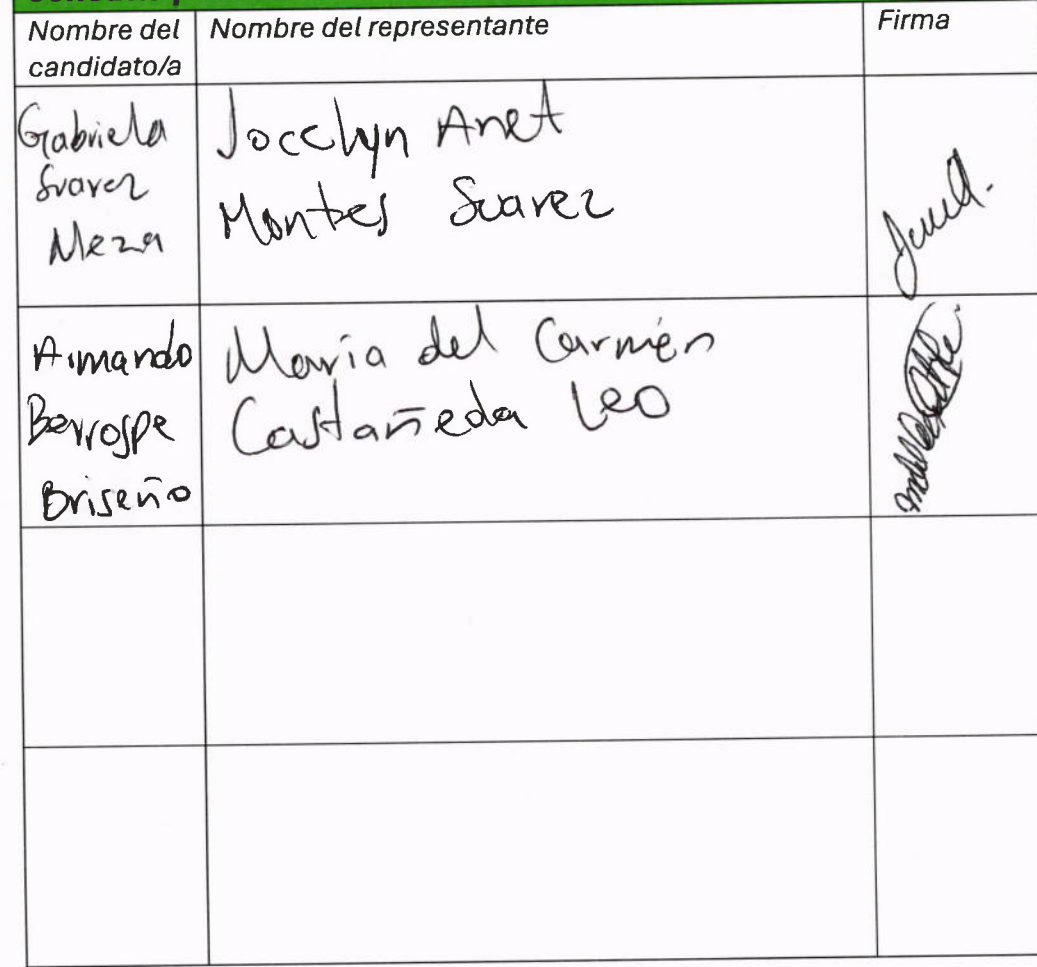 Nombre del candidato/a
Nombre del representante
Firma
Gabriela
Suarez
Meza
Jocelyn Anet
Montes Suarez
Armando
Berrospe
Briseño
María del Carmen
Castañeda Leo